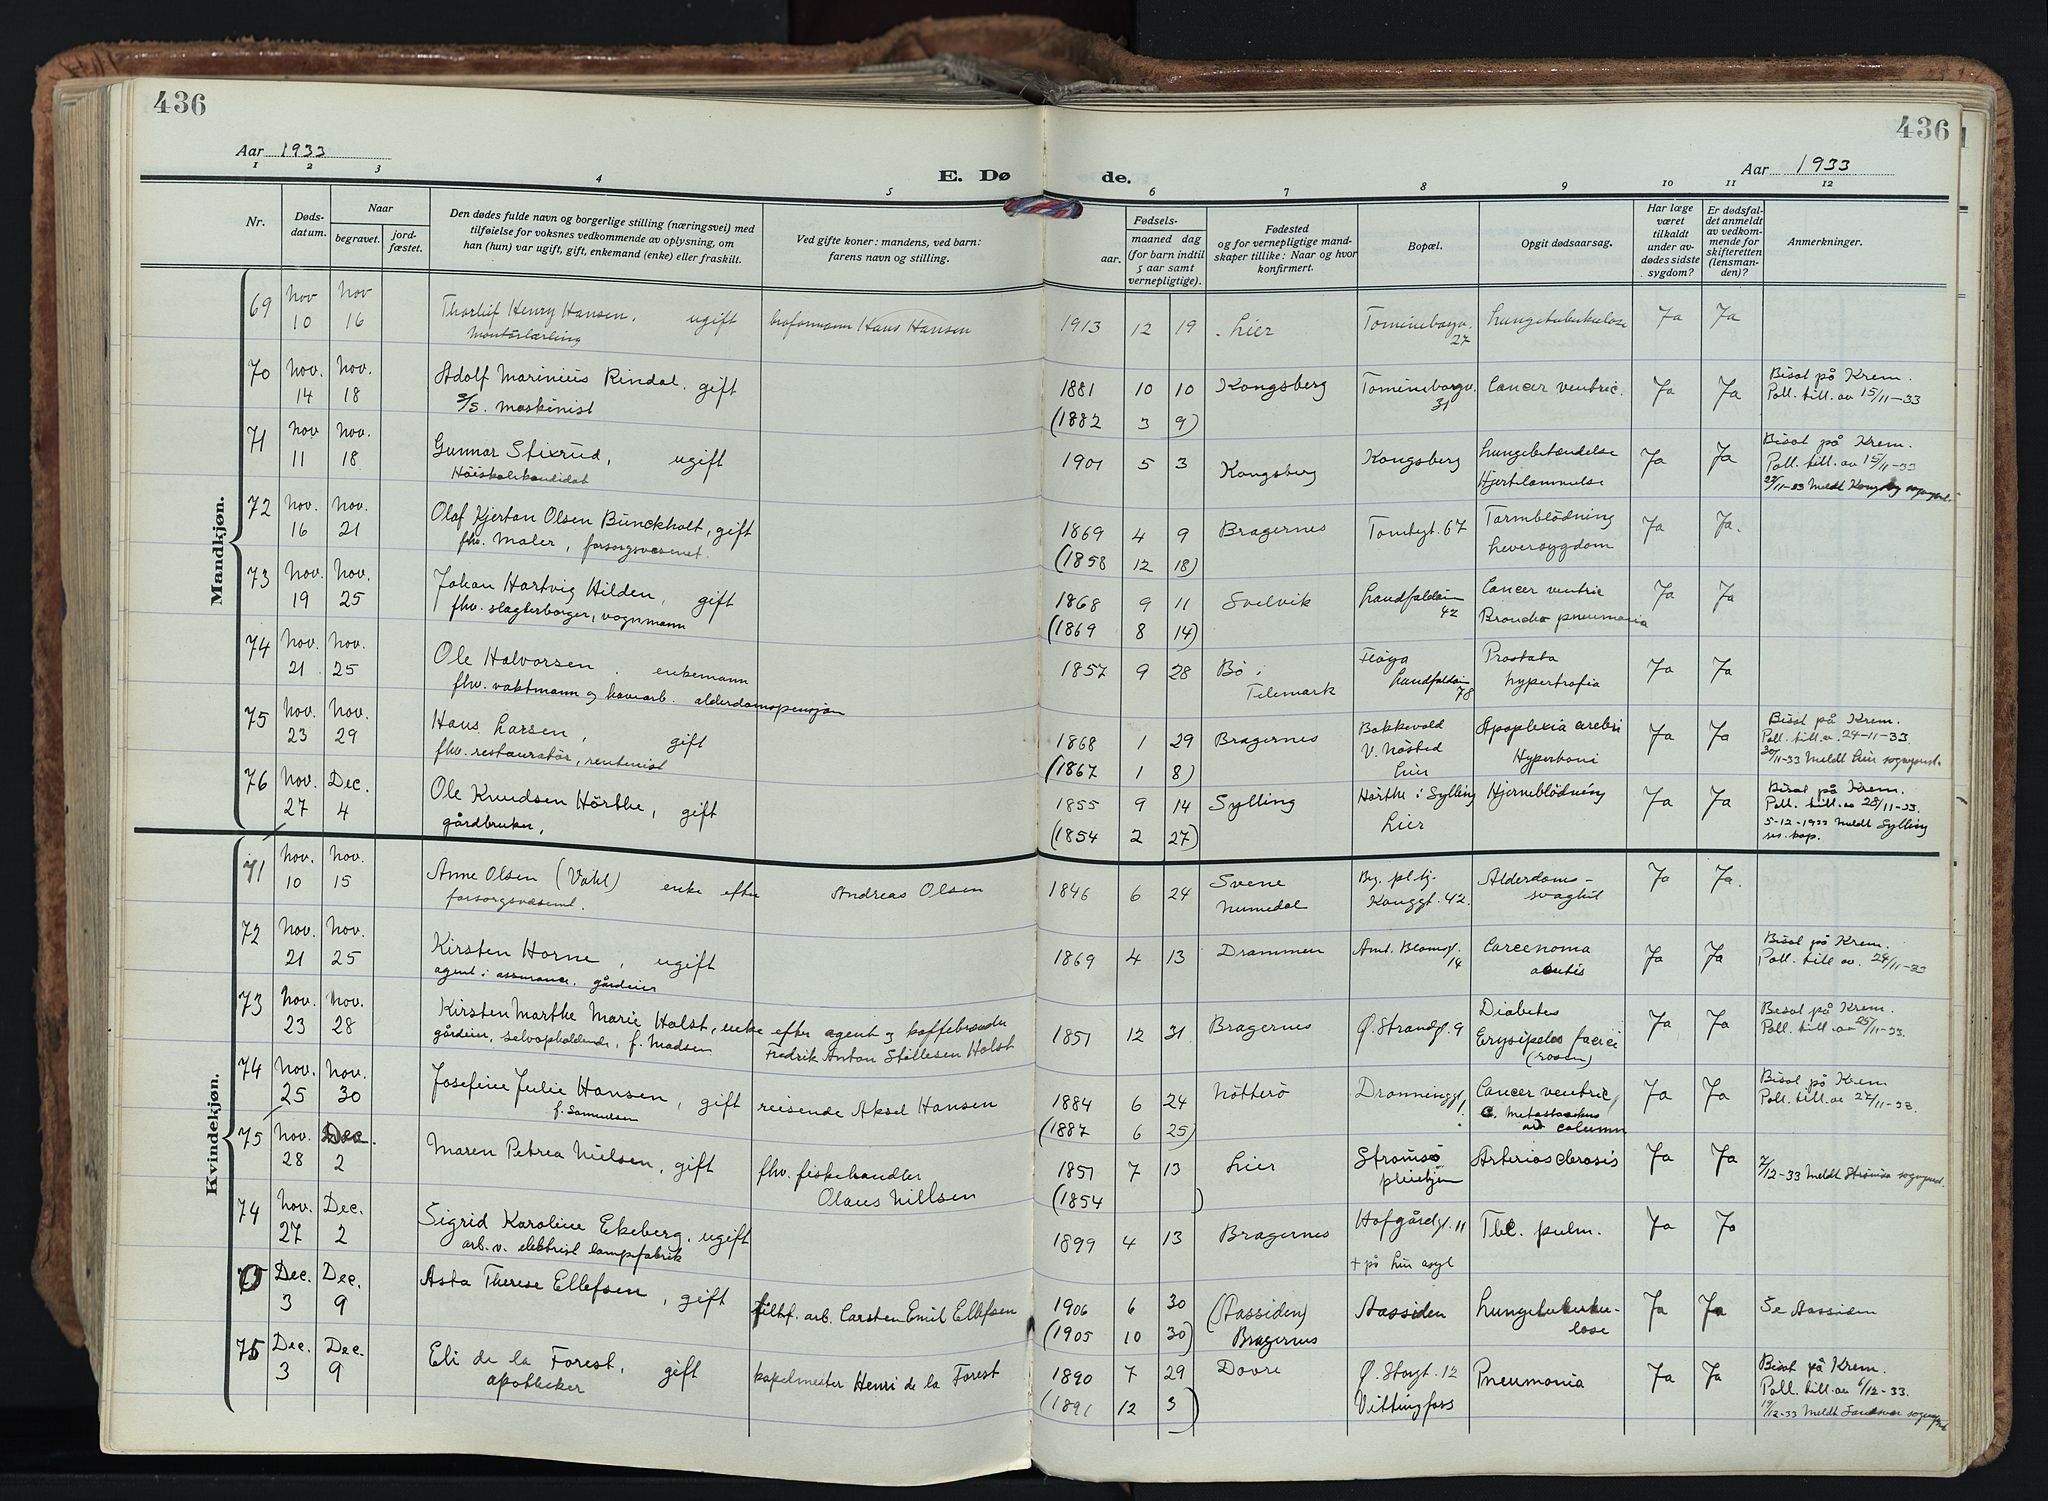 436
436
Aar 1933
E. Dø
de.
Aar 1933
1 2 3 4 5 6 7 8 9 10 11 12
Nr.
Døds-
datum.
Naar
begravet.
jord-
fæstet.
Den dødes fulde navn og borgerlige stilling (næringsvei) med
tilføielse for voksnes vedkommende av oplysning, om
han (hun) var ugift, gift, enkemand (enke) eller fraskilt.
Ved gifte koner: mandens, ved barn:
farens navn og stilling.
Fødsels-
aar.
maaned dag
(for barn indtil
5 aar samt
vernepligtige).
Fødested
og for vernepligtige mand-
skaper tillike: Naar og hvor
konfirmert.
Bopæl.
Opgit dødsaarsag.
Har læge
været
tilkaldt
under av-
dødes sidste
sygdom?
Er dødsfal-
det anmeldt
av vedkom-
mende for
skifteretten
(lensman-
den)?
Anmerkninger.
Mandkjøn.
69 Nov 10 Nov 16 Thorleif Henry Hansen, ugift Hans Hansen 1913 12 19 Lier 27 Lungetuberkulose Ja Ja
Montørlærling
70 Nov. 14 Nov. 18 Adolf Marinius Rindal, gift 1881 10 10 Kongsberg Tomineborgv. 31 Cancer ventric. Ja Ja Bisat på Krem.
s/s. maskinist (1882 3 9) Poll. till. av 15/11-33
71 Nov 11 Nov. 18 Gunnar Stixrud, ugift 1901 5 3 Kongsberg Kongsberg Lungebetændelse Ja Ja Bisat på Krem.
Høiskolekandidat Hjertelammelse Poll. till. av 15/11-33
22/11-33 Meldt
72 Nov. 16 Nov. 21 Olaf Kjertan Olsen Bunckholt, gift 1869 4 9 Bragernes Tomtegt. 67 Tarmblödning Ja Ja.
fhv. Maler, forsorgsvæsenet. (1858 12 18) Leversygdom
73 Nov. 19 Nov. 25 Johan Hartvig Hilden, gift 1868 9 11 Svelvik 42 Cancer ventric Ja Ja
fhv. slagterborger, vognmann (1869 8 14) pneumonia
74 Nov. 21 Nov. 25 Ole Halvorsen. enkemann 1857 9 28 Bö i 78 Prostata Ja Ja
fhv. vaktmann og havearb. alderdomspensjon Telemark hypertrofia
75 Nov. 23 Nov. 29 Hans Larsen, gift 1868 1 29 Bragernes Bakkevold Apoplexia cerebri Ja Ja Bisat på Krem.
fhv. restauratør, rentenist (1867 1 8) V. Nøsted Poll. till. av. 24-11-33.
Lier Hypertoni 30/11-33 Meldt Lier sogneprest.
76 Nov. 27 Dec. 4 Ole Knudsen Hörthe, gift 1855 9 14 Sylling Hörthe i Sylling Hjerneblödning Ja Ja Bisat på Krem.
gårdbruker, (1854 2 27) Lier Poll. till. av 28/11-33.
5-12-1933 Meldt Sylling
res. kap.
Kvindekjøn.
71 Nov. 10 Nov. 15 Anne Olsen (Vahl) enke efter Andreas Olsen 1846 6 24 Svene Brg. pl.hj. Alderdoms- Ja Ja.
Numedal Konggt. 42. svaghet
72 Nov. 21 Nov. 25 Kirsten Horne, ugift 1869 4 13 Drammen 14 Carcenoma Ja Ja Bisat på Krem.
agent i assurance, gårdeier Poll. till av. 24/11-33
73 Nov. 23 Nov. 28 Kirsten Marthe Marie Holst, enke efter agent og kaffebrænder 1851 12 31 Bragernes Ø. Strandgt. 9 Diabetes Ja Ja Bisat på Krem.
gårdeier, selvopholdende, f. Madsen Fredrik Anton Stillesen Holst Erysipelas faciei Poll. till. av 25/11-33.
(rosen)
74 Nov. 25 Nov. 30 Josefine Julie Hansen, gift reisende Aksel Hansen 1884 6 24 Nötterö Dronninggt. 1. Cancer ventric, Ja Ja Bisat på Krem
f. Samuelsen (1887 6 25) ad column Poll. till. av 27/11-33.
75 Nov. 28 Dec. 2 Maren Petrea Nielsen, gift fhv. fiskehandler 1851 7 13 Lier Strømsø Arteriosclerosis Ja Ja 7/12-33 Meldt Strømsø sogneprest.
Olaus Nillsen (1854 ) pleiehjem
74 Nov. 27 Dec. 2 Sigrid Karoline Ekeberg, ugift 1899 4 13 Bragernes Hofgårdgt. 11 Tbc. pulm. Ja Ja
arb. v. elektrisk lampefabrik + på Lier asyl
Dec. 3 Dec. 9 Asta Therese Ellefsen, gift filtf. arb. Carsten Emil Ellefsen 1906 6 30 (Aassiden) Aassiden Lungetuberku- Ja Ja Se Aassiden
(1905 10 30) Bragernes lose
75 Dec. 3 Dec. 9 Eli de la Forest, gift kapelmester Henri de la Forest 1890 7 29 Dovre Ø. Storgt. 12 Pneumonia Ja Ja Bisat på Krem.
apotheker (1891 12 3) Vittingfoss Poll. till. av 6/12-33.
19/12-33 Meldt Sandsvær